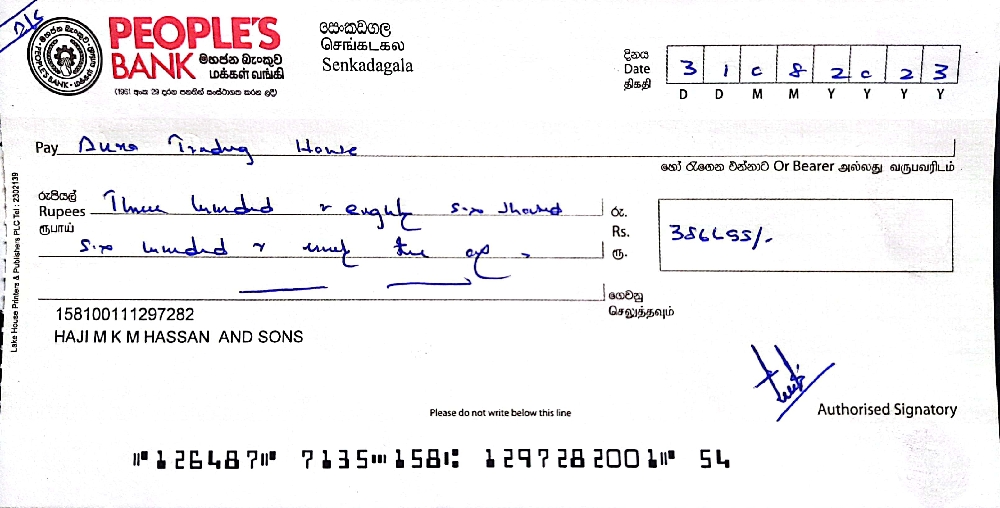 PEOPLE'S
BANK මහජන බැංකුව
மக்கள் வங்கி
(1961 අංක 29 දරන පනතින් සංස්ථාගත කරන ලදි)
සෙංකඩගල
செங்கடகல
Senkadagala
දිනය
Date 3 1 0 8 2 0 2 3
திகதி D D M M Y Y Y Y
Pay Trading House
හෝ රැගෙන එන්නාට Or Bearer அல்லது வருபவரிடம்
රුපියල්
Rupees Three hundred & eighty six thousand
ரூபாய்
six hundred &
රු.
Rs.
ரூ.
ගෙවනු
செலுத்தவும்
158100111297282
HAJI M K M HASSAN AND SONS
Authorised Signatory
Please do not write below this line
⑈126487⑈ 7135⑉158⑆ 1297282001⑈ 54
Lake House Printers & Publishers PLC Tel : 2302139